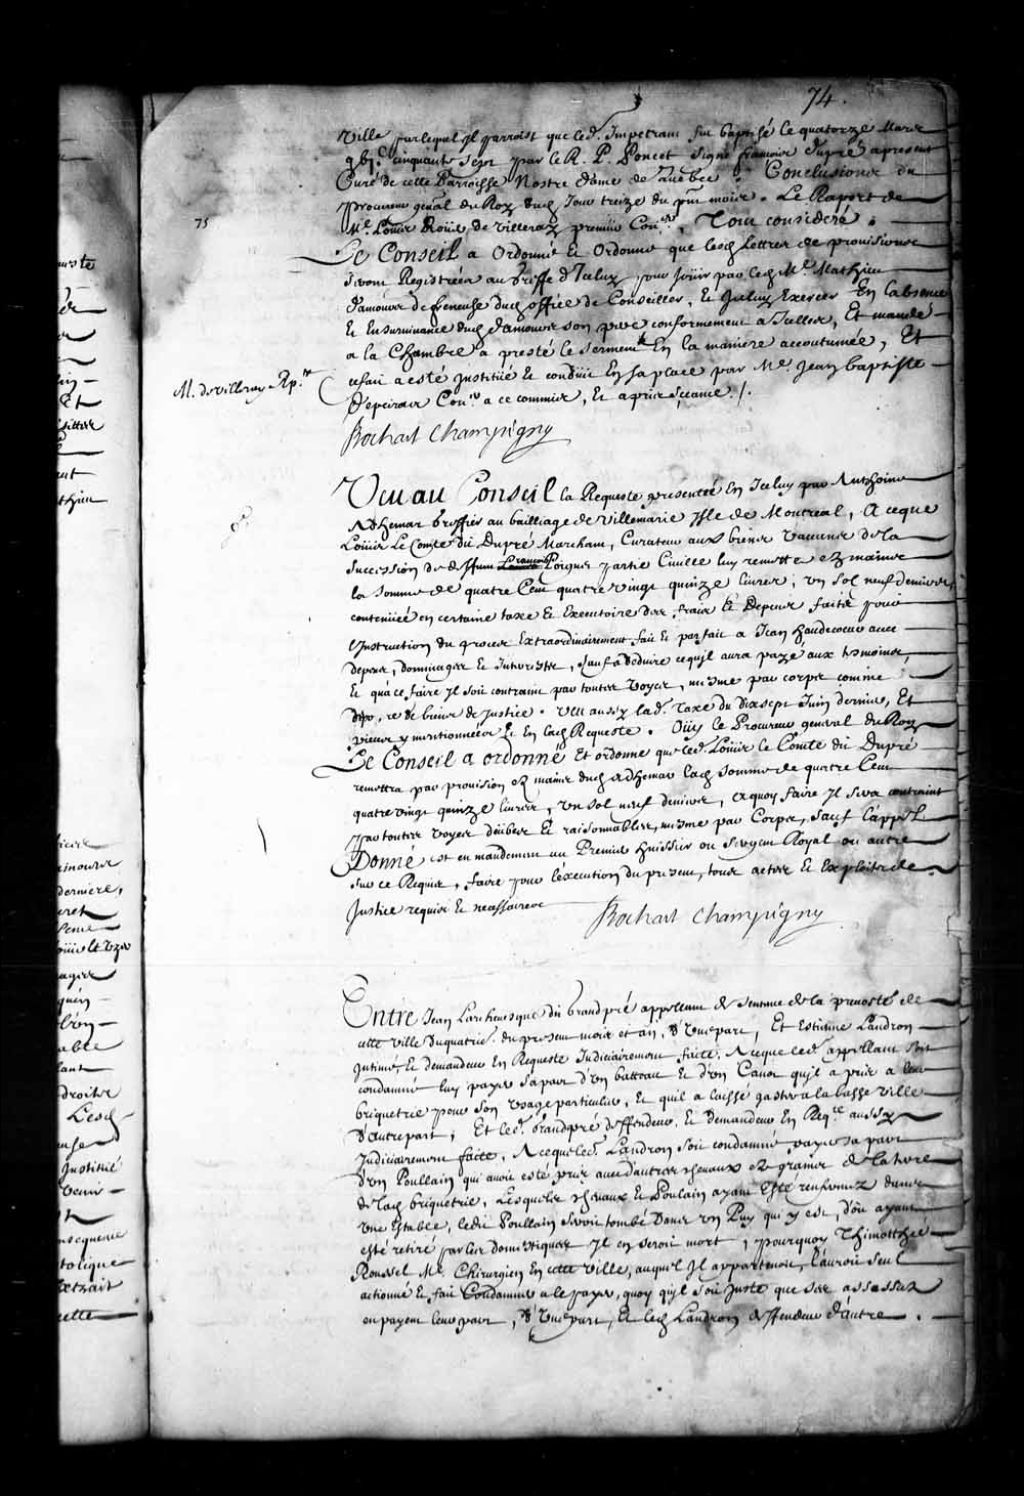 74.
Ville par lequel Il parroist que led. Impetrant fut baptisé le quatorze Mars
gbjC. cinquante Sept par le R. P. Poncet signé francois Dupré apresent
Curé de cette Parroisse Nostre dame de Quebec. Conclusions du
procureur genal du Roy dud. Jour treize du pnt mois. Le Raport de
75
Me. Louis Roüer de Villeray premier Coner. Tout considere.
Le Conseil a Ordonné et Ordonne que lesd. Lettres de provisions
seront Registrées au Greffe d'Iceluy pour Joüir par led. Me. Mathieu
damours de freneuse dud. office de Conseiller, et Jceluy Exercer En l'absence
et En survivance dud. damours son pere conformement a Icelles, Et mandé
a la Chambre a presté le serment En la maniere accoutumée, Et
M. de villeray Rp.r
cefait a esté Institüé et conduit En sa place par Me. Jean baptiste
Depeiras Coner a ce commis, et a pris seance ./.
Bochart Champigny
Veu au Conseil la Requeste presentée En Iceluy par Anthoine
Adhemar Greffier au bailliage de Villemarie Isle de Montreal, A ceque
Loüis Le Comte dit Dupré Marchant, Curateur aux biens vaccans de la
succession de deffunt francois Poignet partie Civille luy remette ez mains
la somme de quatre Cent quatre vingt quinze livres, un sol neuf deniers,
contenüe en certaine taxe et Executoire des fraix et Depens faits pour
L'Instruction du proces Extraordinairement fait et parfait a Jean haudecoeur avec
depens, dommages et Interests, sauf a deduire cequ'il aura payé aux tesmoins,
Et qu'a ce faire Il soit contraint par toutes voyes, mesme par corps comme
depositaire de biens de Justice. Veu aussy lad. Taxe du dixsept Juin dernier, Et
pieces y mentionnées Et En lad. Requeste. Oüy le Procureur general du Roy
Le Conseil a ordonné Et ordonne que led. Loüis le Comte dit Dupré
remettra par provision ez mains dud. Adhemar lad. somme de quatre Cent
quatre vingt quinze livres, un sol neuf deniers, a quoy faire Il sera contraint
par toutes voyes deües et raisonnables, mesme par Corps, sauf l'appel
Donné est en mandement au Premier huissier ou Sergent Royal ou autre
sur ce Requis, faire pour l'execution du present, tous actes et Exploits de
Justice requis et necessaires
Bochart Champigny
Entre Jean Larchevesque dit Grandpré appellant de sentence de la prevosté de
cette ville du quatrie. du present mois et an, d'Une part, Et Estienne Landron
Intimé, et demandeur En Requeste Judiciairement faite, A ceque led. appellant soit
condamné luy payer sa part d'un batteau et d'un Canot qu'il a pris a leur
briqueterie pour son usage particulier, et quil a laissé gaster a la basse ville
D'autre part, Et led. Grandpré deffendeur, et Demandeur En Reqte. aussy
Judiciairement faite, A ceque led. Landron soit condamné payer sa part
d'un Poullain qui avoit esté pris avec d'autres chevaux ez grains de la terre
de lad. briqueterie, Lesquels chevaux et Poulain ayant Esté renfermez dans
une Estable, ledit Poullain seroit tombé Dans un Puy qui y est, d'où ayant
esté retiré par les domestiques Il en seroit mort, pourquoy Thimotthée
Roussel Me. Chirurgien En cette ville, auquel Il appartenoit, l'auroit seul
actionné et fait Condamner a le payer, quoy quil soit juste que ses associez
en payent leur part, d'Une part, Et led. Landron deffendeur d'autre.